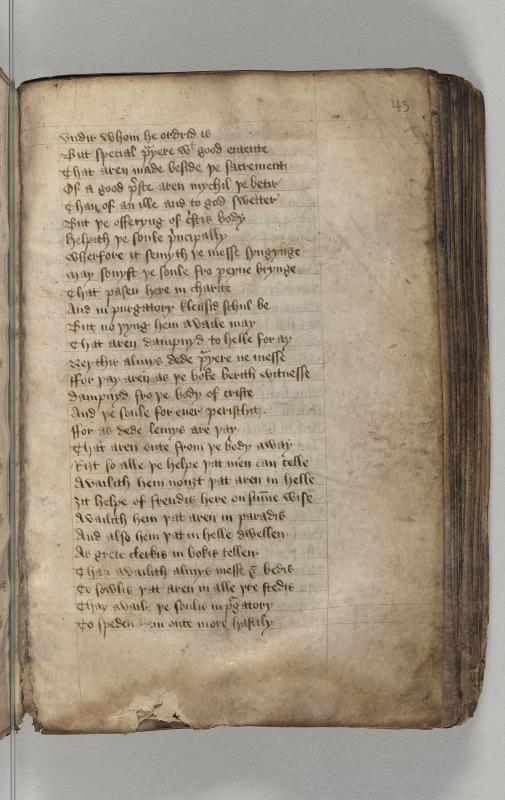 43
vndir whom he ordrid is
But special pͬyere wͭ good entente
That aren made beside þe sacrement
Of a good pͬste aren mychil þe betir
Than of an ille and to god swetter
But þe offeryng of cͬstis body
helpith þe soule pͬncipally
wherfore it semyth þe messe syngynge
may sonyst þe soule fro peyne brynge
That pasen here in charite
And in purgatory klensid schul be
But no þyng hem availe may
That aren dampnyd to helle for ay
Neythir almys dede pͬyere ne messe
ffor þay aren as þe boke berith witnesse
dampnyd fro þe body of criste
And þe soule for euer perischit
ffor as dede lemys are þay
That aren oute from þe body away
Riȝt so alle þe helpe þat men can telle
Availith hem nouȝt þat aren in helle
ȝit helpe of frendis here on sum̄e wise
Availith hem þat aren in paradis
And also hem þat in helle dwellen
As grete clerkis in bokis tellen
Than availith almys messe & bedis
To sowlis þat aren in alle þre stedis
Thay availe þe soulis in pͬgatory
To speden hem oute more hastily